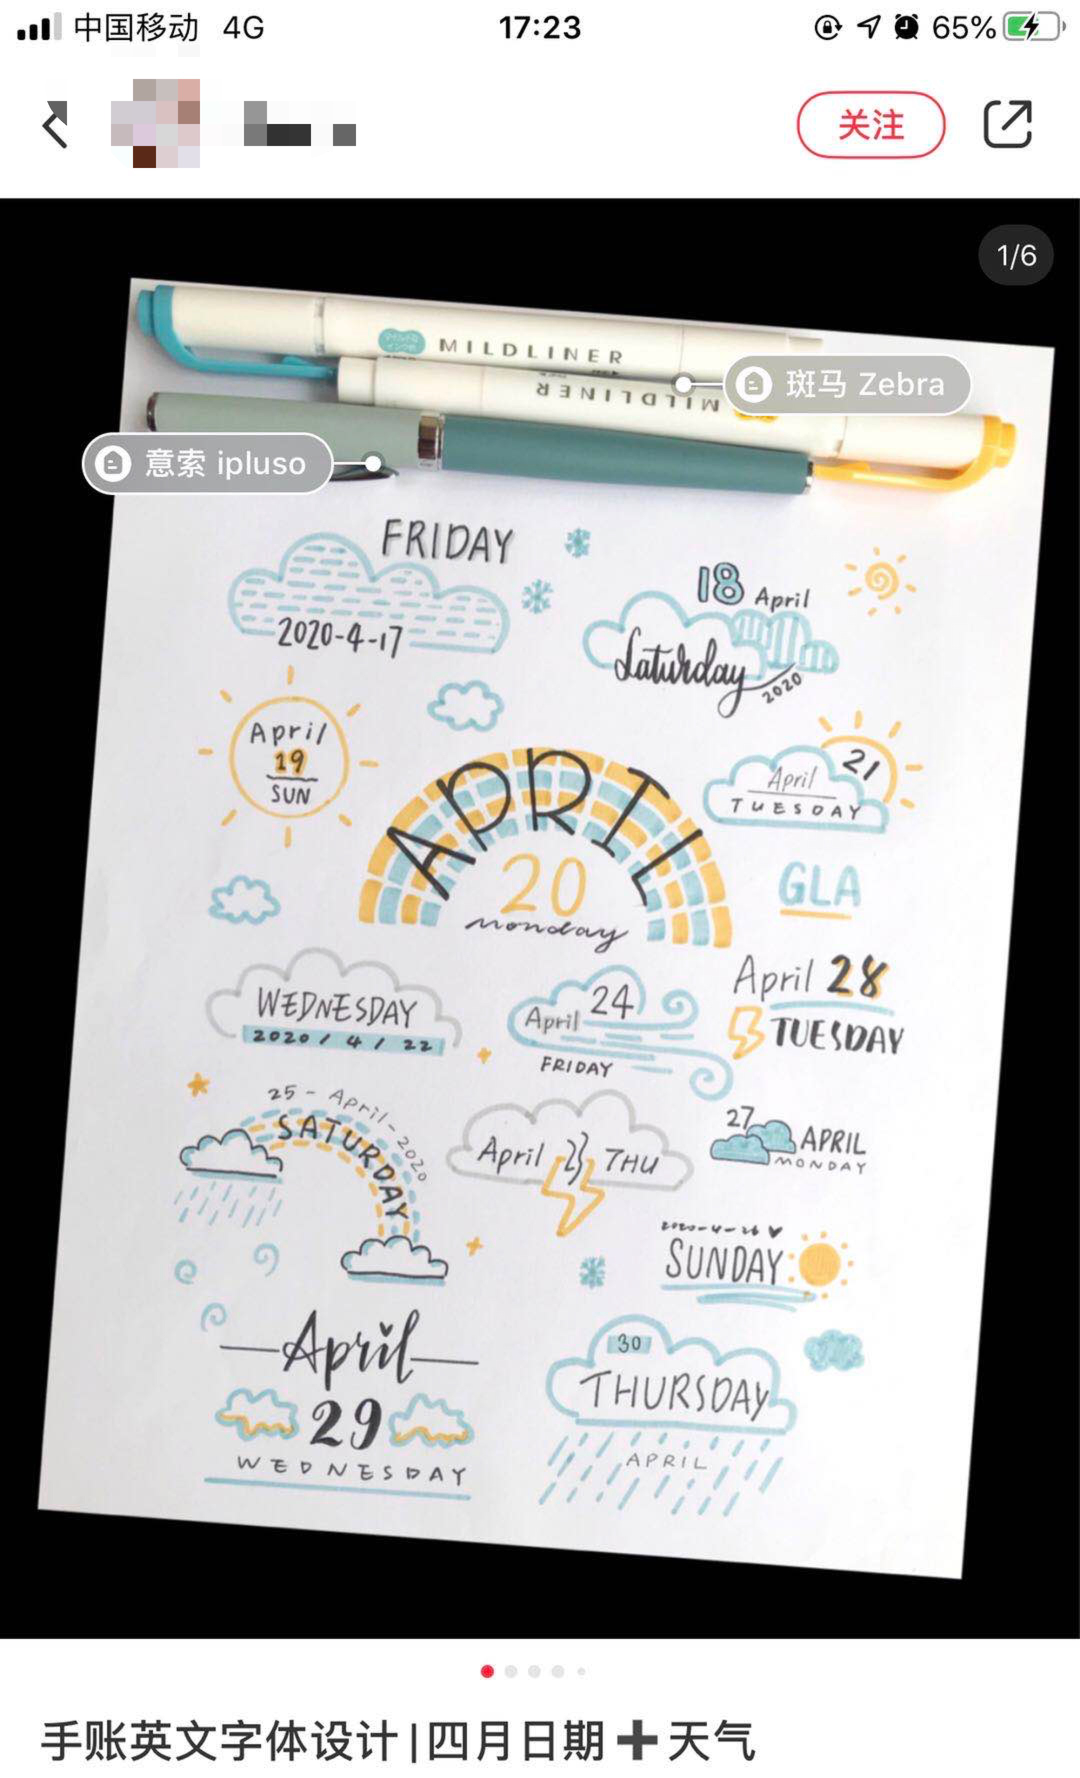 中国移动 4G 17:23 65%
关注
1/6
MILDLINER
MILDLINER
斑马 Zebra
意索 ipluso
FRIDAY
2020-4-17
18 April
Saturday
2020
April
19
SUN
APRIL
20
monday
21
April
TUESDAY
GLA
WEDNESDAY
2020 / 4 / 22
24
April
FRIDAY
April 28
TUESDAY
25 - April - 2020
SATURDAY
April 23 THU
27
APRIL
MONDAY
2020-4-26
SUNDAY
April
29
WEDNESDAY
30
THURSDAY
APRIL
手账英文字体设计|四月日期➕天气